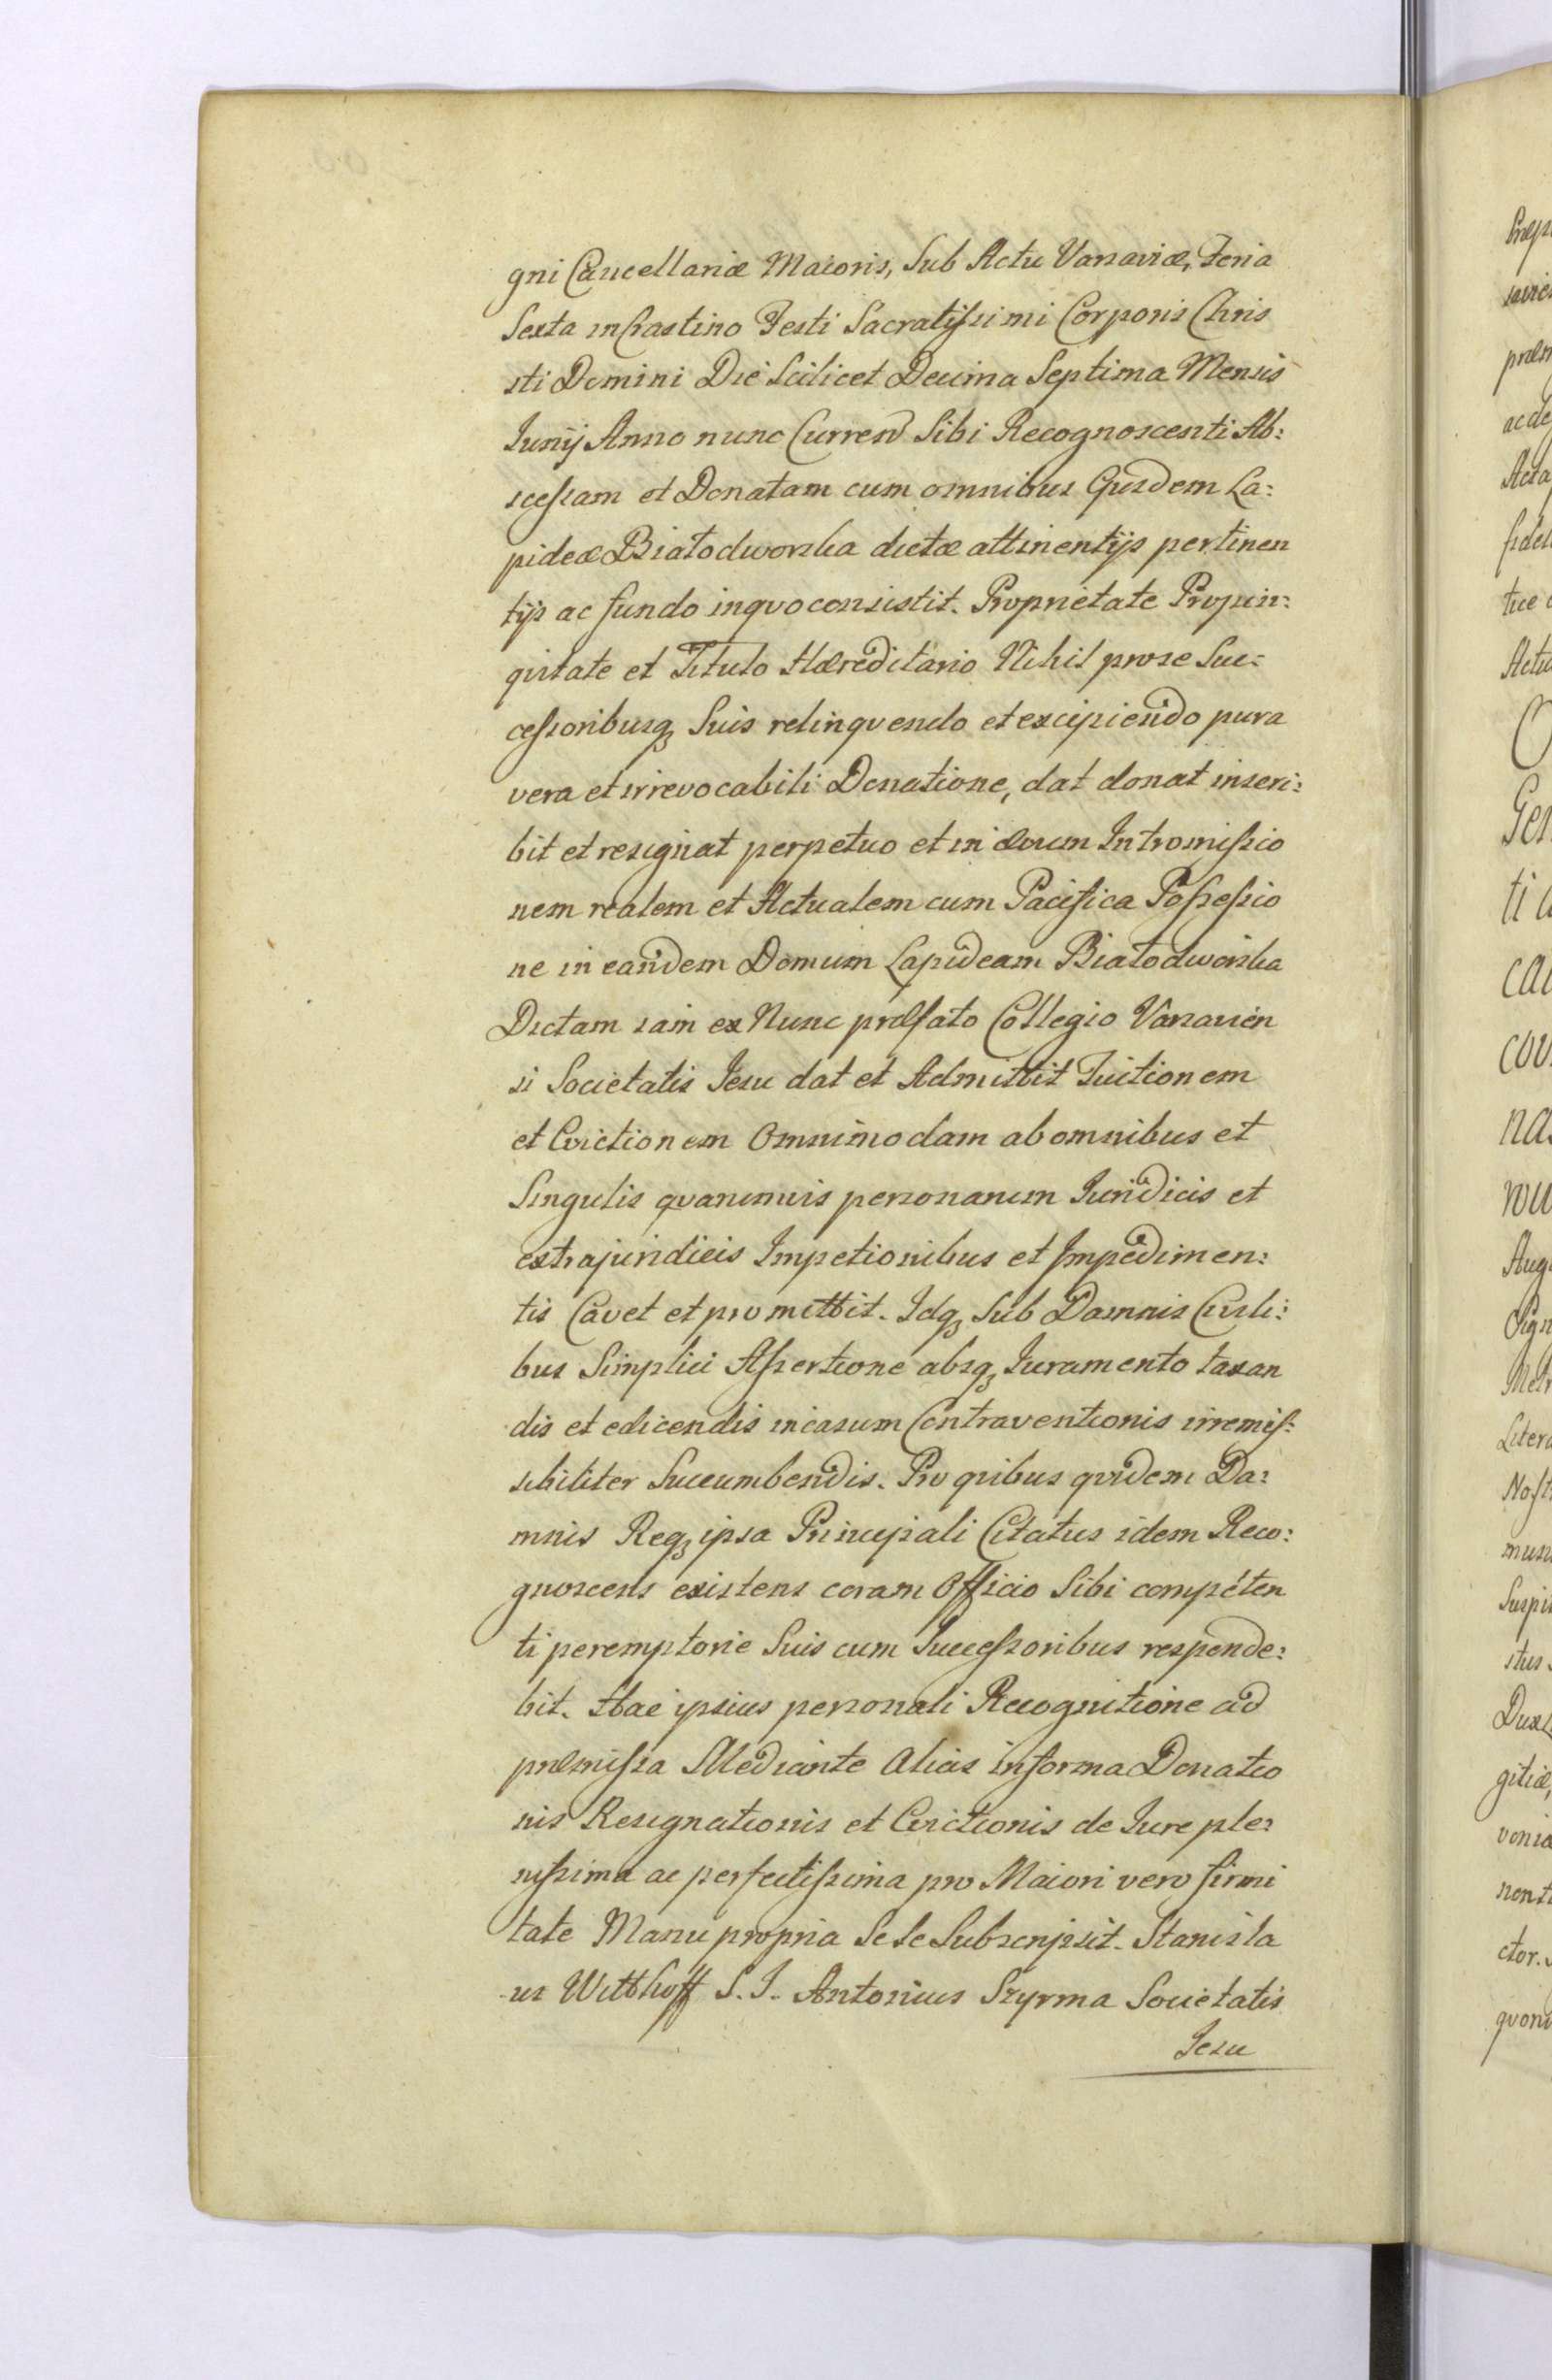 gni Cancellariæ Maioris, Sub Actu Varsaviæ, Feria
Sexta in Crastino Festi Sacratissimi Corporis Chris
sti Domini Die Scilicet Decima Septima Mensis
Junÿ Anno nunc Curren Sibi Recognoscenti Ab:
scessam et Donatam cum omnibus Ejusdem La:
pideæ Białodworska dictæ attinentijs pertinen
tijs ac fundo in qvo consistit. Proprietate Propin:
qvitate et Titulo Hæreditario Nihil pro se Suc:
cessoribusq, Suis relinqvendo et excipiendo pura
vera et irrevocabili Donatione, dat donat inscri:
bit et resignat perpetuo et in ævum Intromissio
nem realem et Actualem cum Pacifica Possessio
ne in eandem Domum Lapideam Białodworska
Dictam iam ex Nunc præfato Collegio Varsavien
si Societatis Jesu dat et Admittit Tuitionem
et Evictionem Omnimodam ab omnibus et
Singulis qvarumvis personarum Juridicis et
extrajuridicis Impetionibus et Impedimen:
tis Cavet et promittit. Idq, Sub Damnis Civili:
bus Simplici Assertione absq, Juramento taxan
dis et edicendis in casum Contraventionis irremis:
sibiliter Succumbendis. Pro qvibus qvidem Da:
mnis Req, ipsa Principali Citatus idem Reco:
gnoscens existens coram Officio Sibi competen
ti peremptorie Suis cum Successoribus responde:
bit. Hac ipsius personali Recognitione ad
præmissa Mediante Alias in forma Donatio
nis Resignationis et Evictionis de Jure ple:
nissima ac perfectissima pro Maiori vero firmi
tate Manu propria Se Se Subscripsit. Stanisla
us Witthoff S. J. Antonius Szyrma Societatis
Jesu